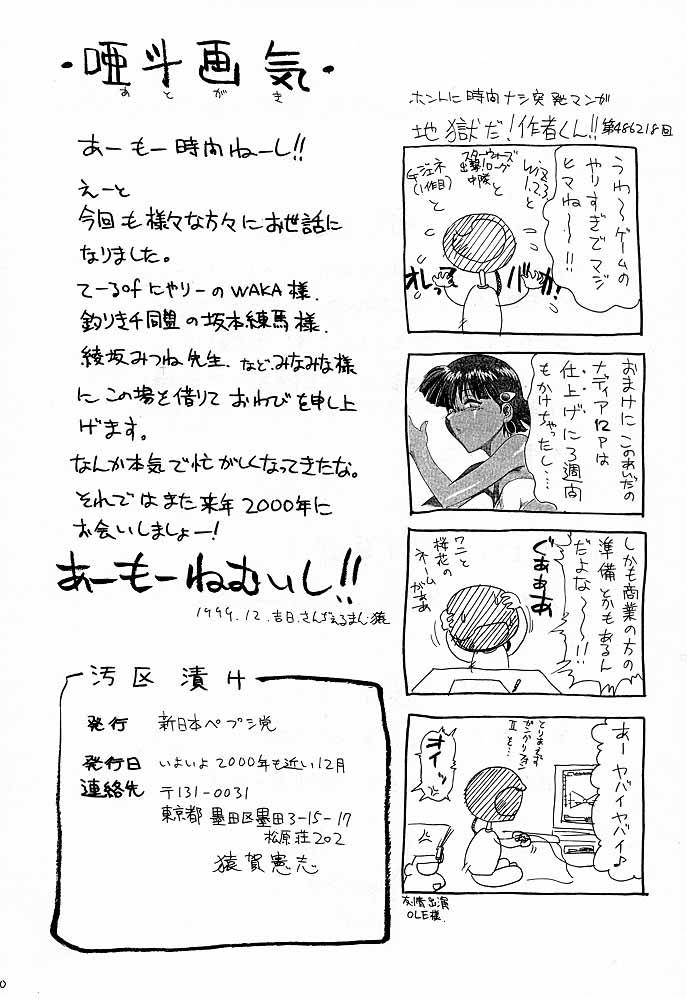 ・唖斗画気・
あとがき
あーもー時間ねーし!!
えーと
今回も様々な方々にお世話に
なりました。
てーるofにゃりーのWAKA様.
釣りキチ同盟の坂本練馬様.
綾坂みつね先生.などみなみな様
にこの場を借りておわびを申し上
げます。
なんか本気で忙がしくなってきたな。
それではまた来年2000年に
お会いしましょー!
あーもーねむいし!!
1999.12.吉日.さんぢぇるまん・猿
汚区漬け
発行 新日本ペプシ党
発行日 いよいよ2000年も近い12月
連絡先 〒131-0031
東京都 墨田区墨田3-15-17
松原荘202
猿賀憲志
ホントに時間ナシ突発マンガ
地獄だ!作者くん!!第486218回
うわ〜ゲームの
やりすぎでマジ
ヒマね〜〜!!
Wiz
1.2.3
と
スターウォーズ
出撃!ローグ
中隊
と
チジェネ
(1作目)
と
オレって
バカ!?
おまけにこのあいだの
ナディア12Pは
仕上げに3週間
もかけちゃったし…
しかも商業の方の
準備とかもあるん
だよな〜〜!!
ぐぁぁぁ
ワニと
桜花の
ネームがぁぁ
あーヤバイヤバイ♪
とりあえず
ガンガリファン
IIを…
オイッ
友情出演
OLE様.
0